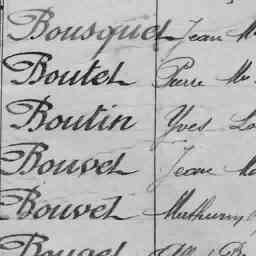 Bousquet Jean M
Boutet Pierre M
Boutin Yves Lo
Bouvet Jean Ma
Bouvet Mathurin